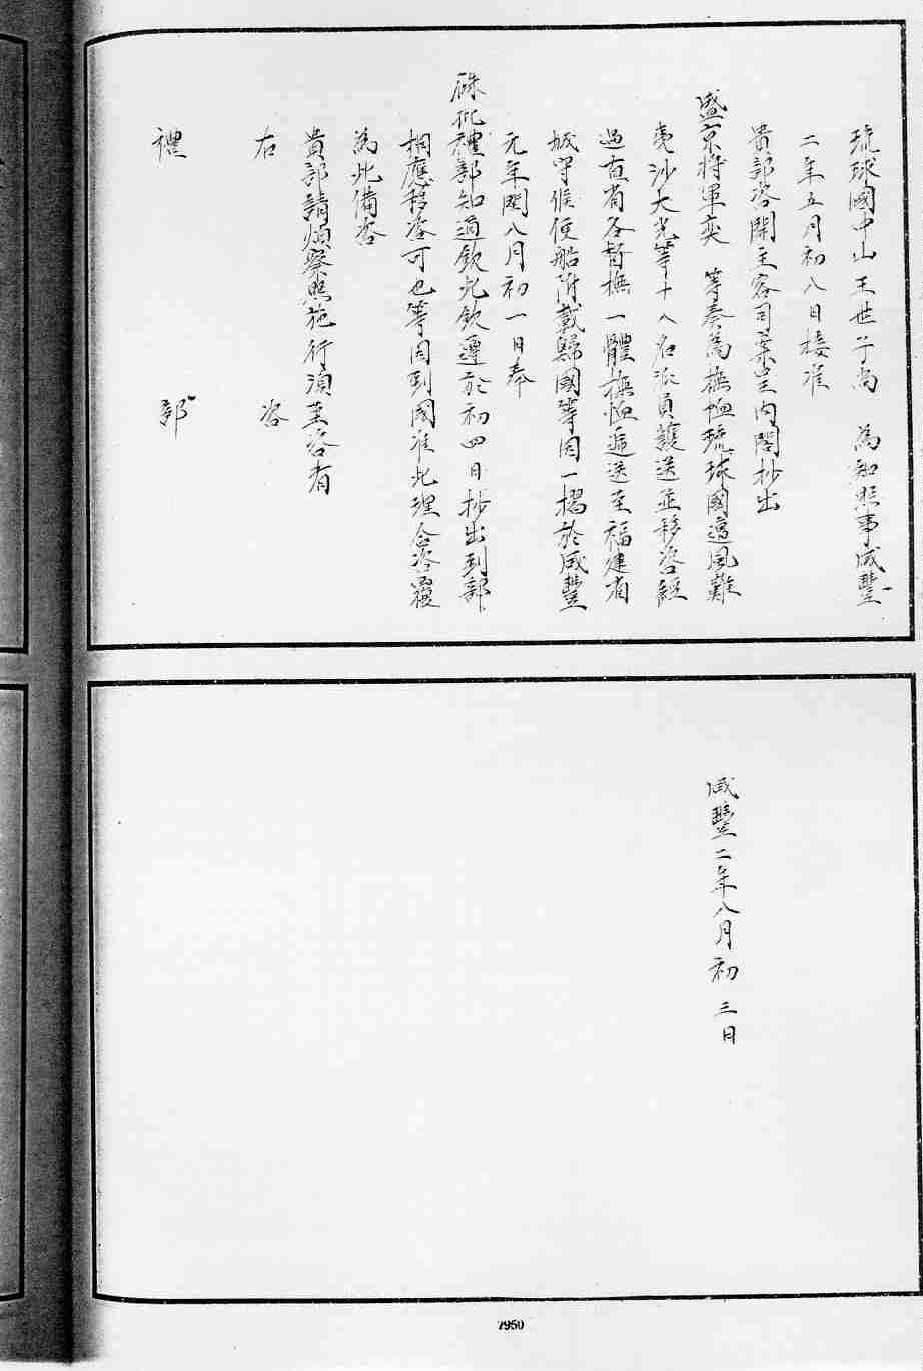 琉球國中山王世子尚　為知照事咸豐
二年五月初八日接准
貴部咨開主客司案呈內閣抄出
盛京將軍奕　等奏為撫恤琉球國遭風難
夷沙大光等十八名派員護送並移咨經
過直省各督撫一體撫恤遞送至福建省
城守候便船附載歸國等因一摺於咸豐
元年閏八月初一日奉
硃批禮部知道欽此欽遵於初四日抄出到部
相應移咨可也等因到國准此理合咨覆
為此備咨
貴部請煩察照施行須至咨者
右　咨
禮　部
咸豐二年八月初三日
7950